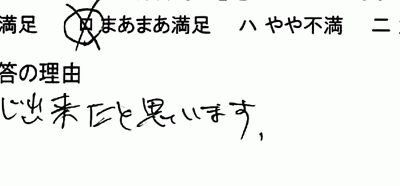 満足 ロ まあまあ満足 ハ やや不満 ニ
答の理由
じ出来たと思っています。